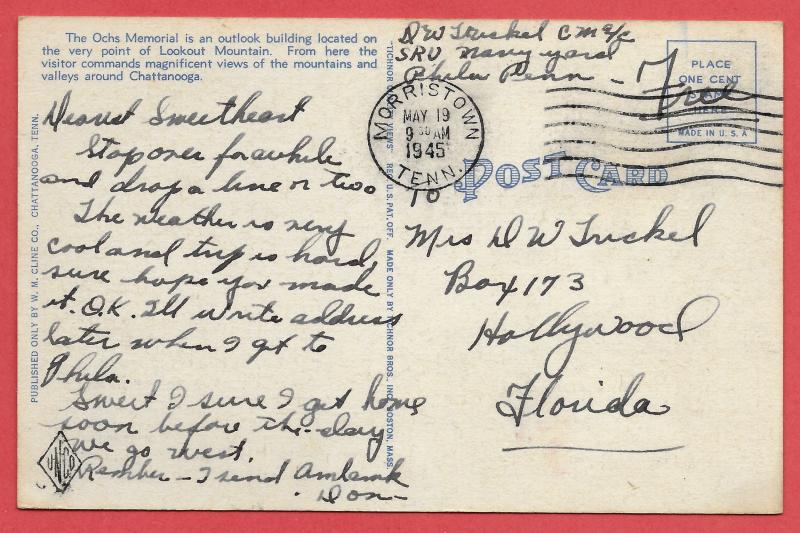 The Ochs Memorial is an outlook building located on
the very point of Lookout Mountain. From here the
visitor commands magnificent views of the mountains and
valleys around Chattanooga.
D W Truskel C M 2/c
SRU Navy yard
Phila Penn
Free
PLACE
ONE CENT
STAMP
HERE
MADE IN U.S.A
MORRISTOWN
MAY 19
9 30 AM
1945
TENN.
POST CARD
TO
Mrs D W Truskel
Box 173
Hollywood
Florida
Dearest Sweetheart
Stop over for awhile
and drop a line or two
The weather is very
cool and trip is hard,
sure hope you made
it. O.K. I'll write address
later when I get to
Phila.
Sweet I sure I get home
soon before the day
we go west.
Rember - I send
Don-
PUBLISHED ONLY BY W. M. CLINE CO., CHATTANOOGA, TENN.
REG. U.S. PAT. OFF. MADE ONLY BY TICHNOR BROS., INC., BOSTON, MASS.